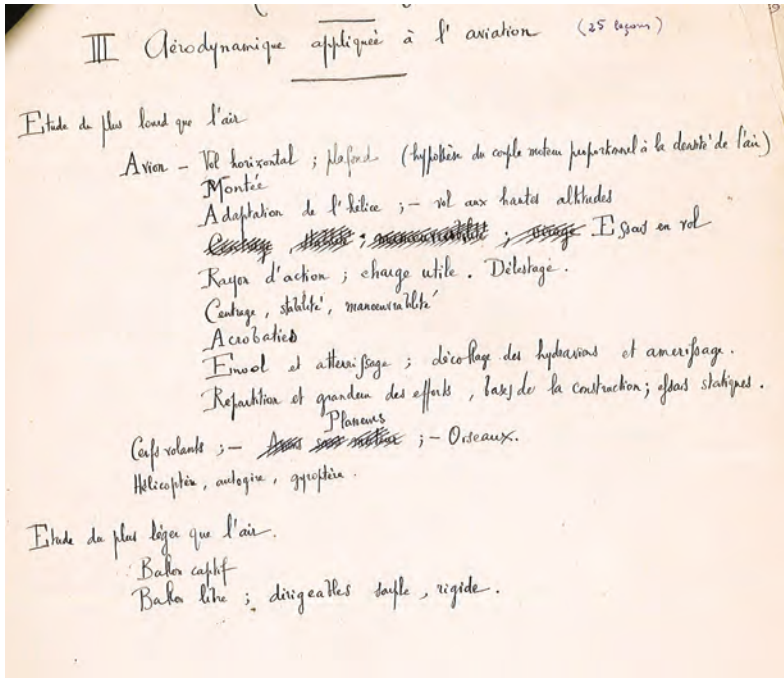 III Aérodynamique appliquée à l'aviation (25 leçons)
Etude du plus lourd que l'air
Avion - Vol horizontal ; plafond (hypothèse du couple moteur proportionnel à la densité de l'air)
Montée
Adaptation de l'hélice ; - vol aux hautes altitudes
Essais en vol
Rayon d'action ; charge utile. Délestage.
Centrage, stabilité, manoeuvrabilité
Acrobaties
Envol et atterrissage ; décollage des hydravions et amerissage.
Répartition et grandeur des efforts, bases de la construction ; essais statiques.
Planeurs
Cerfs volants ; - ; - Oiseaux.
Hélicoptère, autogire, gyroptère.
Etude du plus léger que l'air.
Ballon captif
Ballon libre ; dirigeables souple, rigide.